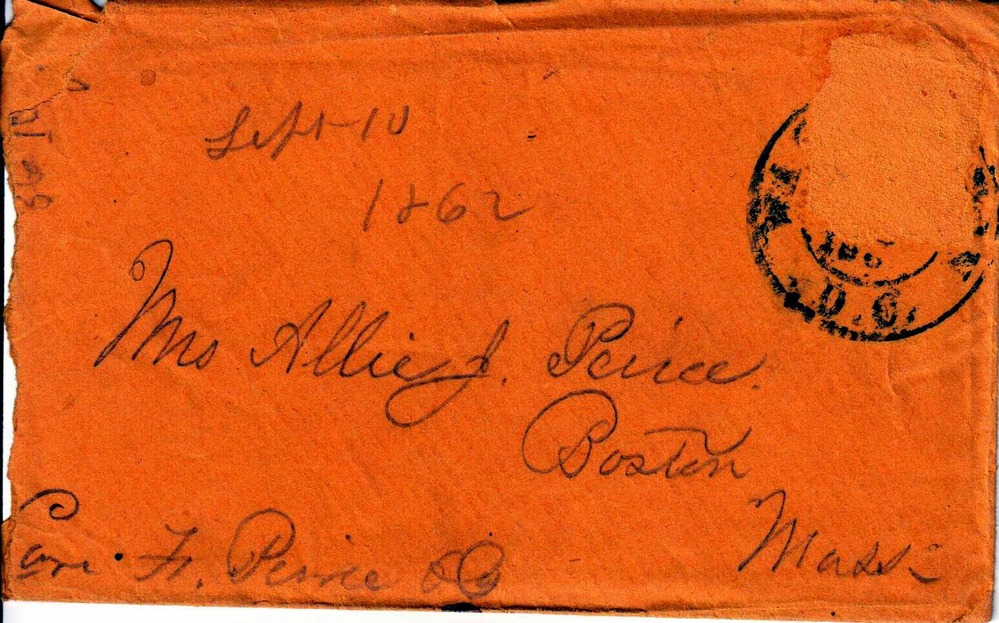 Sept 10
1862
D.C.
Mrs Allie J. Peirce.
Boston
Mass
F. Peirce & Co